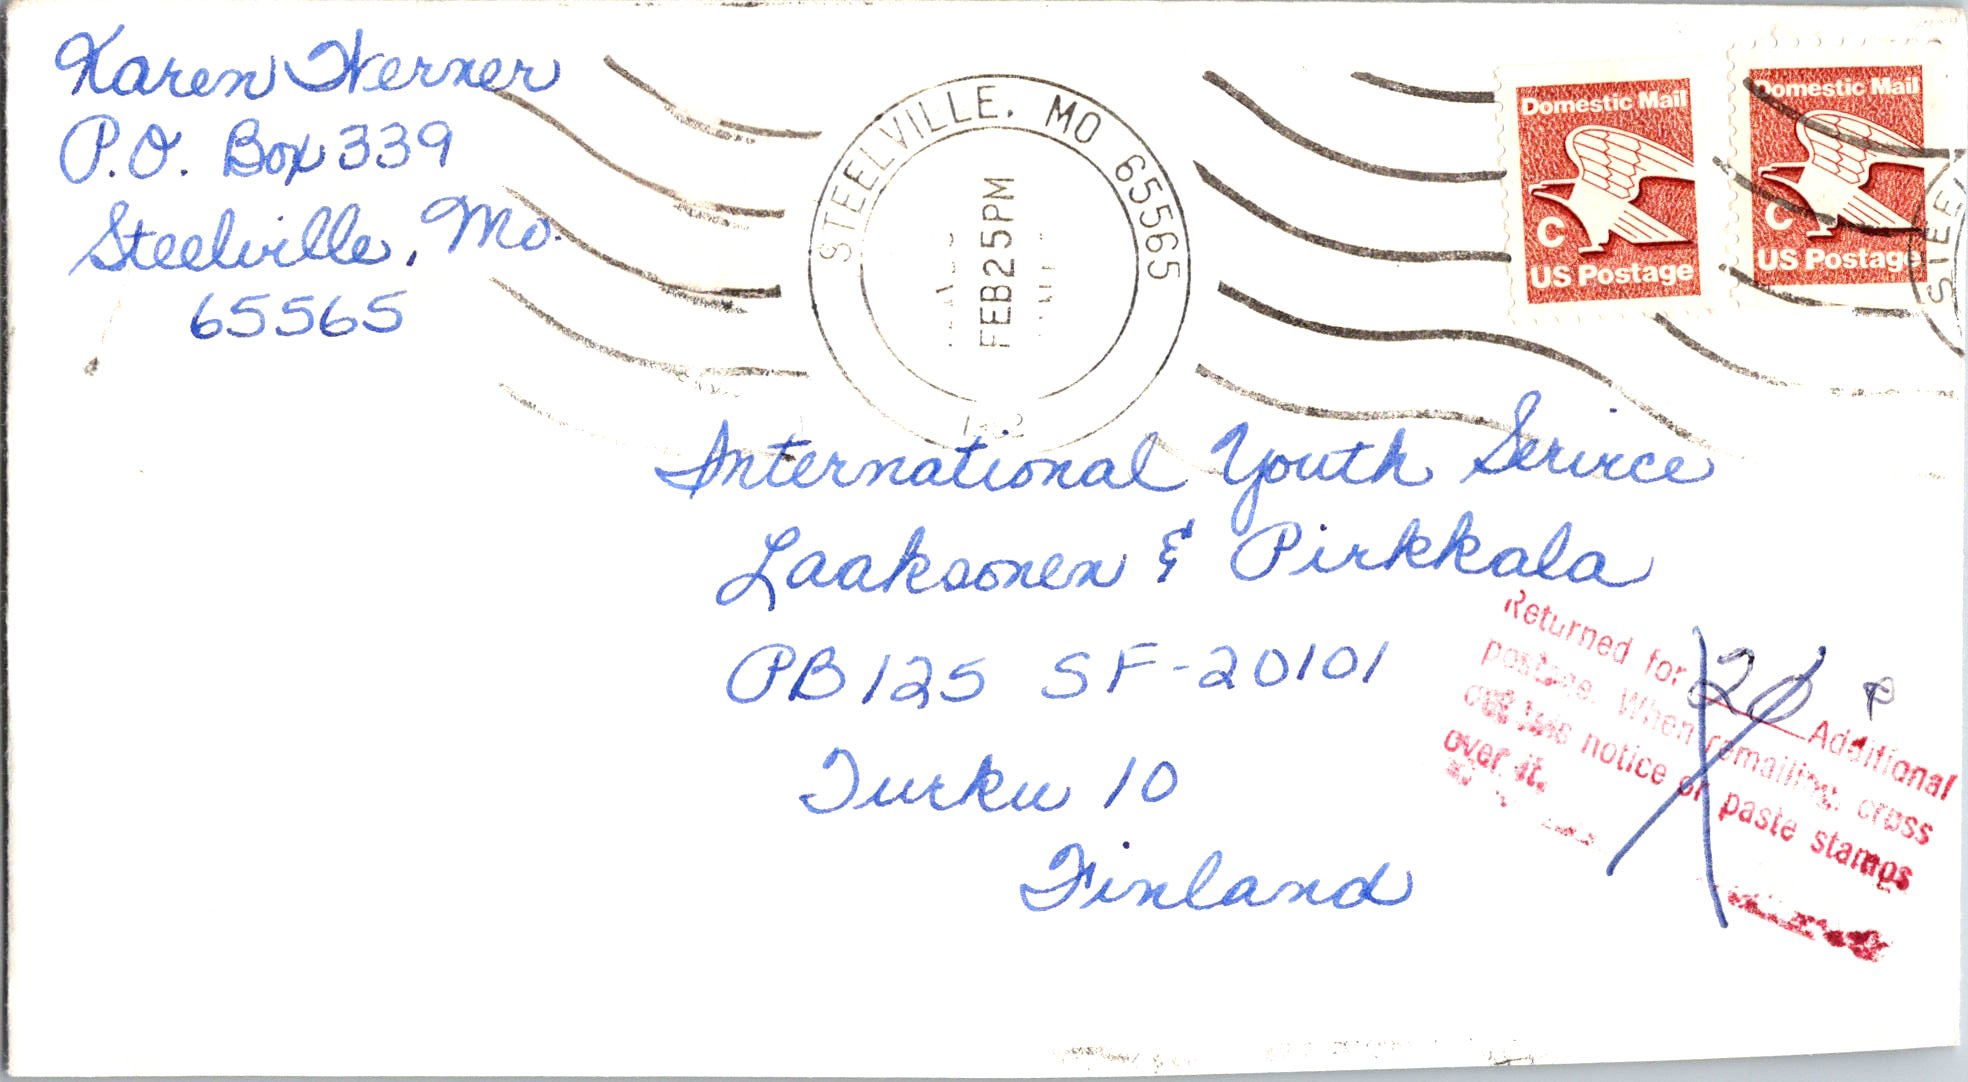 Karen Werner
P.O. Box 339
Steelville, Mo.
65565
STEELVILLE, MO 65565
FEB 25 PM
Domestic Mail
C
US Postage
Domestic Mail
C
US Postage
STEEL
International Youth Service
Laaksonen & Pirkkala
PB 125 SF-20101
Turku 10
Finland
Returned for 20 Additional
postage. When remailing, cross
out this notice or paste stamps
over it.